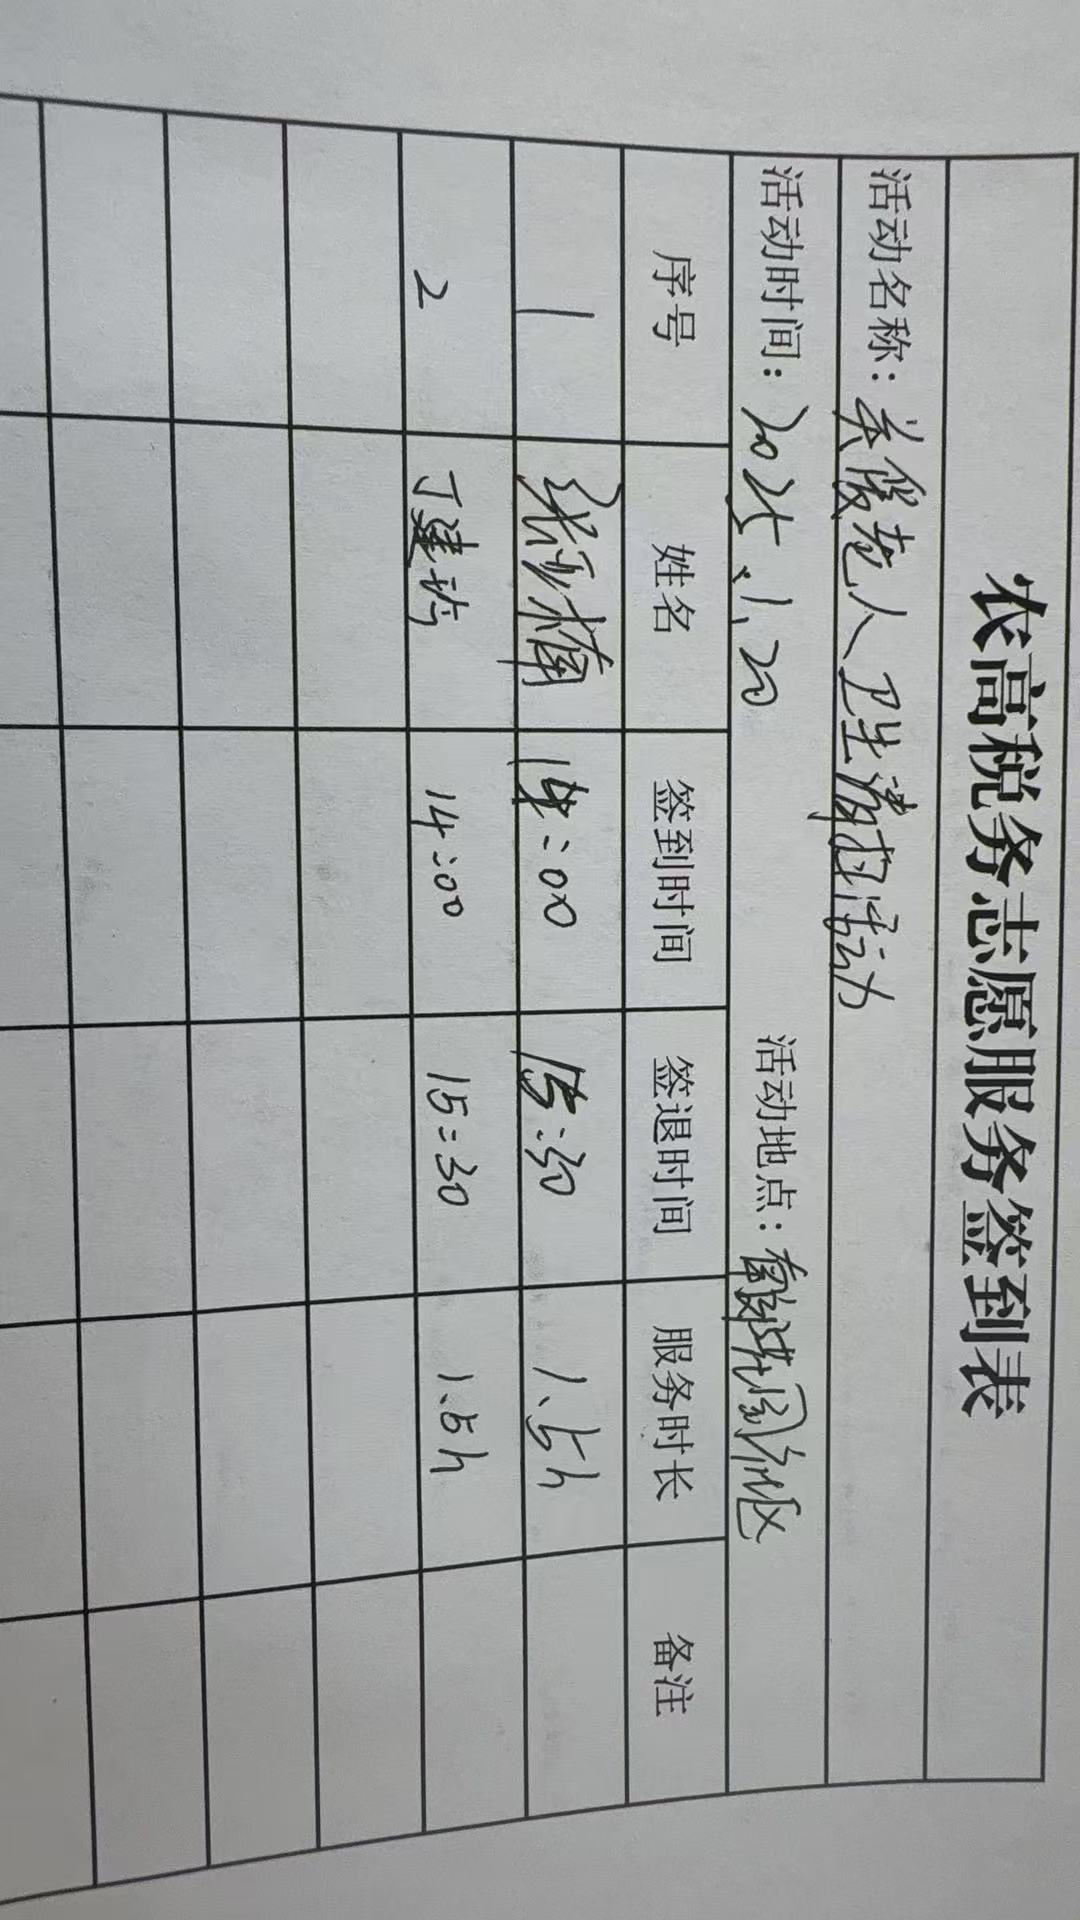 农高税务志愿服务签到表
活动名称：关暖老人卫生清扫活动
活动时间：2025.1.20 活动地点：
序号 姓名 签到时间 签退时间 服务时长 备注
1 张 楠 14:00 15:30 1.5h
2 丁建 14:00 15:30 1.5h